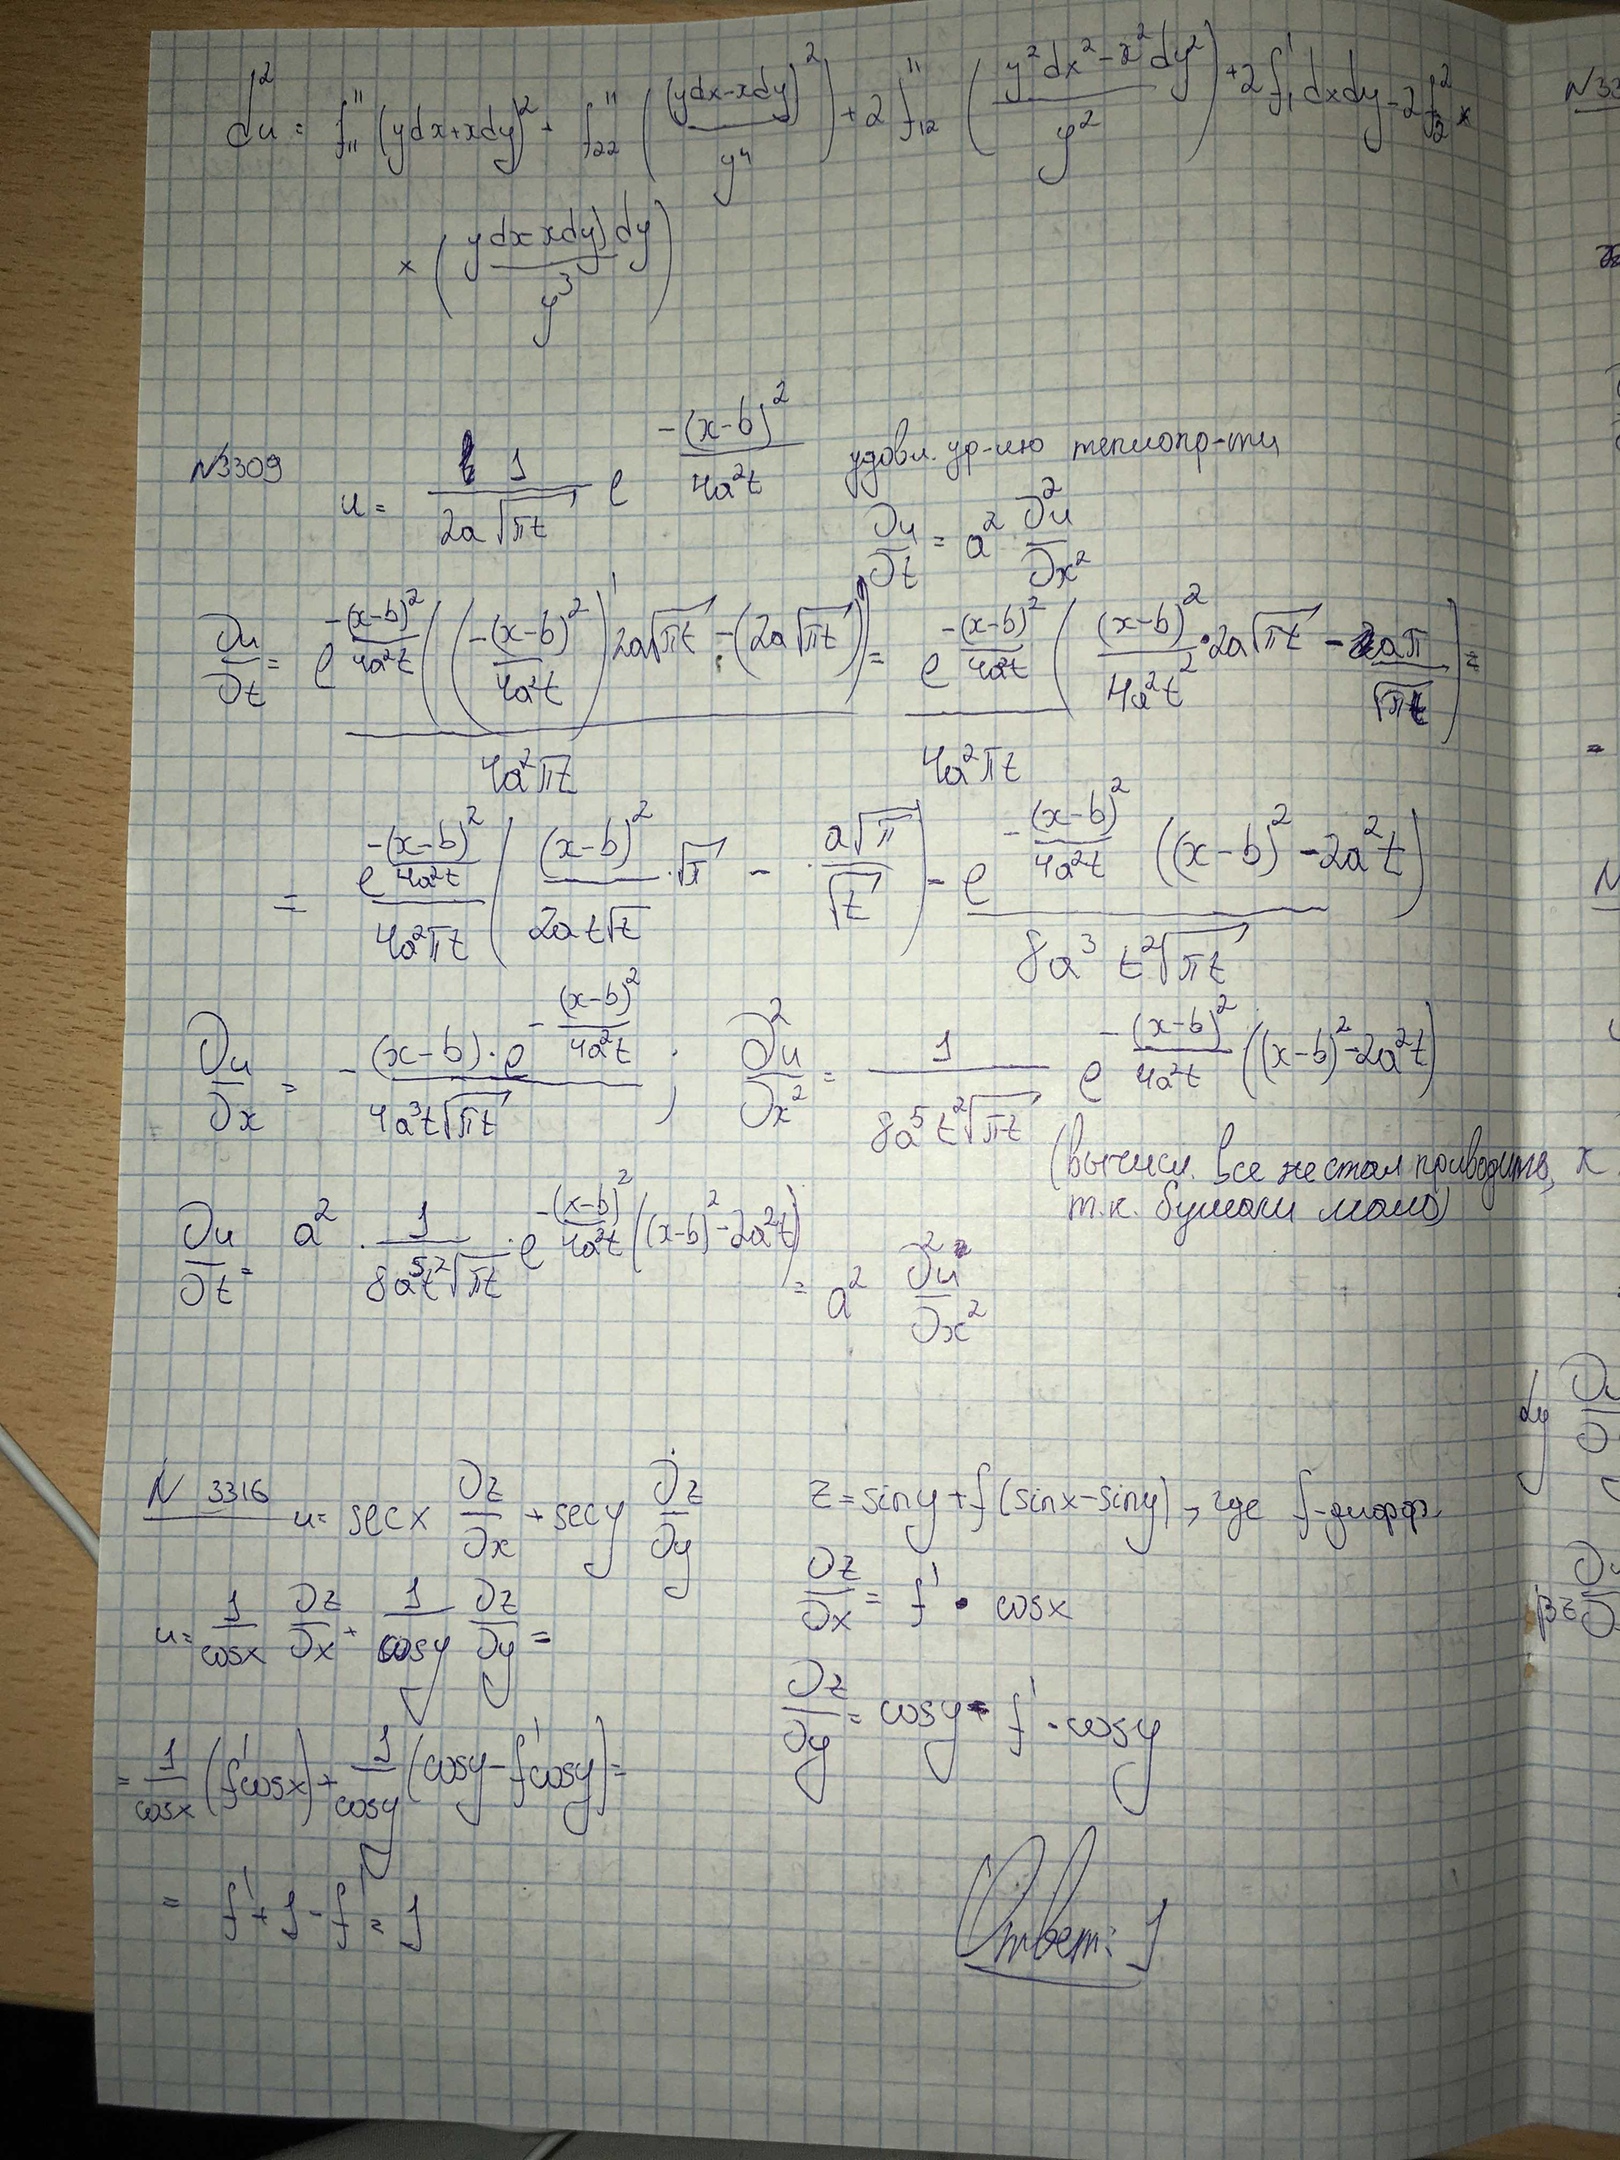 d²u = f₁₁'' (ydx+xdy)² + f₂₂'' ((ydx-xdy)²/y⁴) + 2 f₁₂'' ((y²dx² - x²dy²)/y²) + 2f₁' dxdy - 2f₂² ×
× ((ydx xdy) dy / y³)
N3309 u = 1/(2a√(πt)) e^(-(x-b)²/(4a²t)) удовл. ур-ию теплопр-ти
∂u/∂t = a² ∂²u/∂x²
∂u/∂t = e^(-(x-b)²/(4a²t)) ((-(x-b)²/(4a²t))' 2a√(πt) - (2a√(πt))') / (4a²πt) = e^(-(x-b)²/(4a²t)) / (4a²πt) ((x-b)²/(4a²t²) · 2a√(πt) - aπ/√(πt)) =
= e^(-(x-b)²/(4a²t)) / (4a²πt) ((x-b)²/(2at√t) · √π - a√π/√t) = e^(-(x-b)²/(4a²t)) ((x-b)² - 2a²t) / (8a³t²√(πt))
∂u/∂x = - (x-b)·e^(-(x-b)²/(4a²t)) / (4a³t√(πt)) ; ∂²u/∂x² = 1/(8a⁵t²√(πt)) e^(-(x-b)²/(4a²t)) ((x-b)² - 2a²t)
(вычисл. все не стал приводить,
т.к. бумаги мало)
∂u/∂t = a² · 1/(8a⁵t²√(πt)) · e^(-(x-b)²/(4a²t)) ((x-b)² - 2a²t) = a² ∂²u/∂x²
N 3316 u = secx ∂z/∂x + secy ∂z/∂y z = siny + f(sinx-siny), где f-дифф.
u = 1/cosx ∂z/∂x + 1/cosy ∂z/∂y = ∂z/∂x = f' · cosx
∂z/∂y = cosy - f' · cosy
= 1/cosx (f'cosx) + 1/cosy (cosy - f'cosy) =
= f' + 1 - f' = 1
Ответ: 1